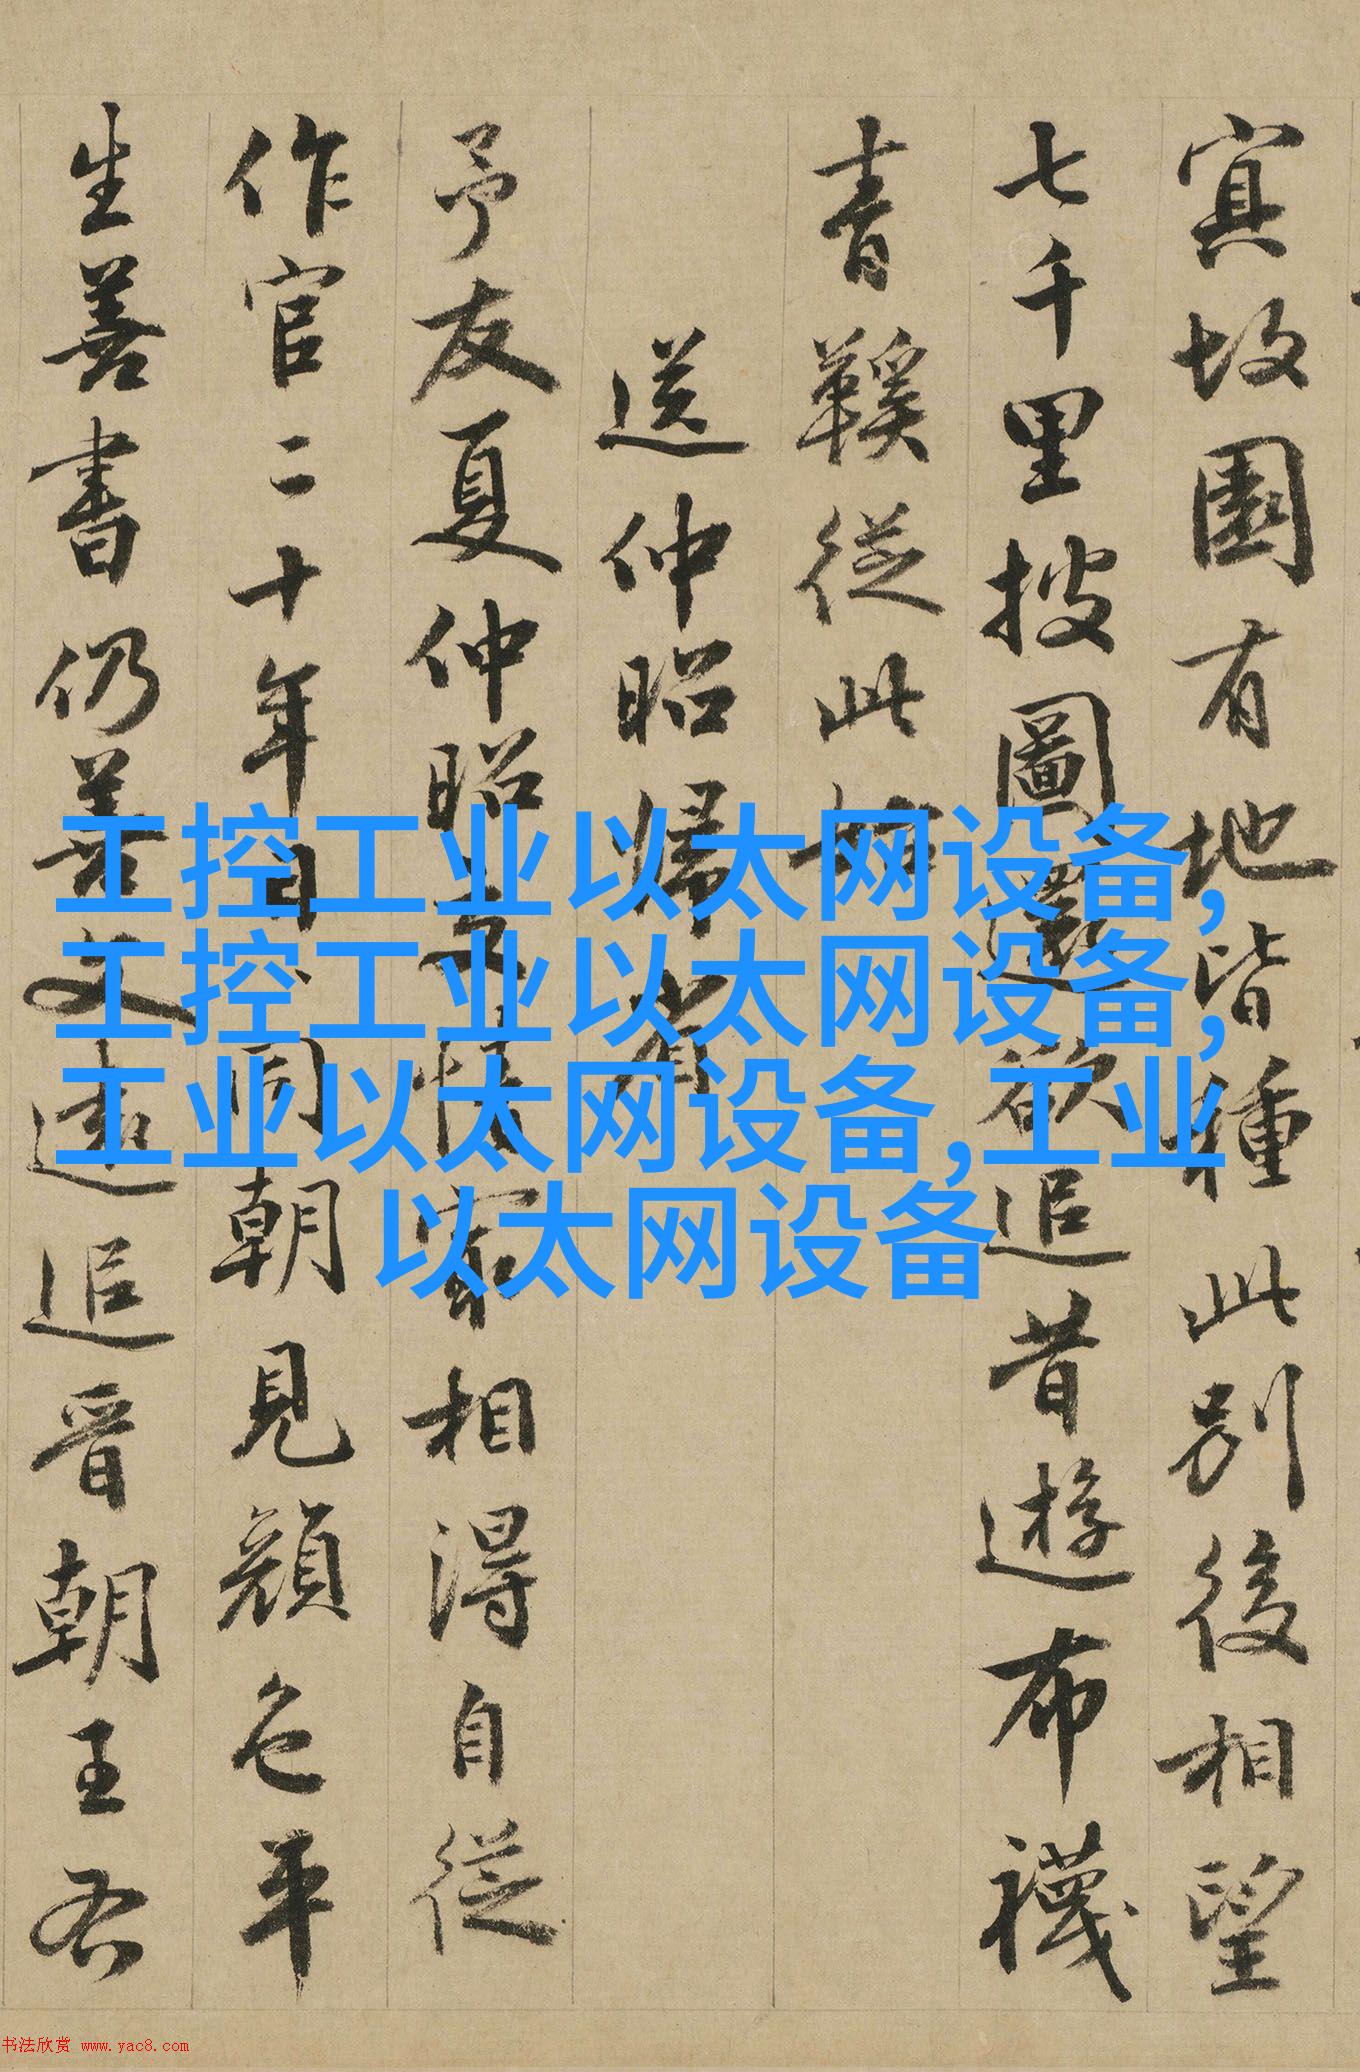 故園有地皆種此別後相望
七千里披圖還欲追昔遊布襪
青鞵從此始
送仲昭歸省
予友夏仲昭交情最相得自從
作官二十年日日同朝見顏色平
生善書仍善文遠追晉朝王右
工控工业以太网设备,
工控工业以太网设备,
工业以太网设备,工业
以太网设备
书法欣赏 www.yac8.com